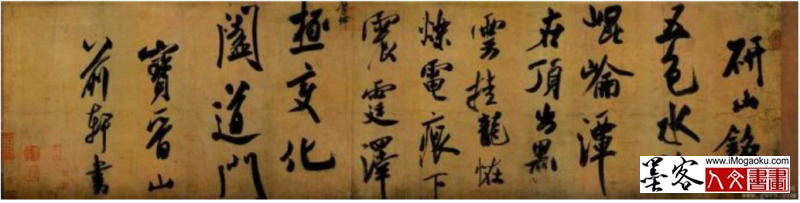 研山銘
五色水
崐崘潭
在頂出黑
雲挂龍恠
爍電痕下
震霆澤
極变化
闔道門
寶晉山
前軒書
www.iMogaoku.com
墨客
人文書畫